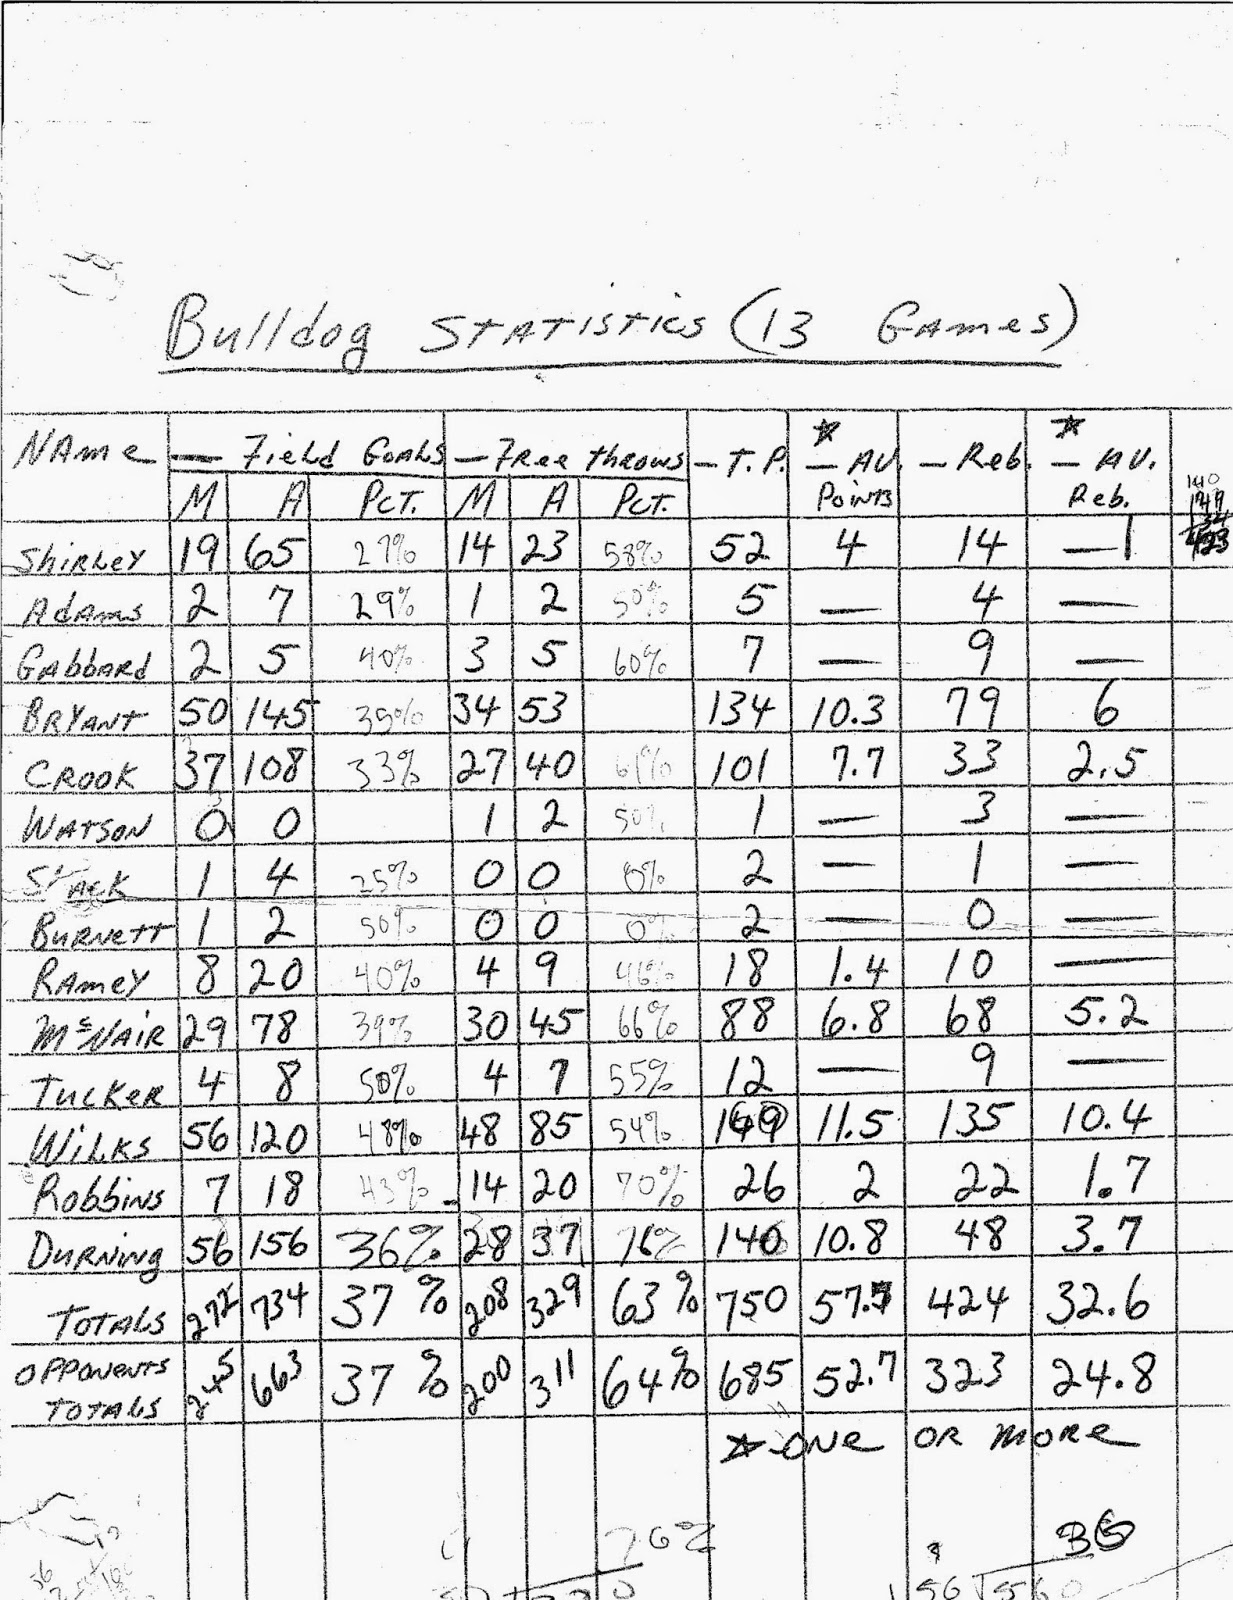 Bulldog STATISTICS (13 Games)
NAme — Field GOALS — Free Throws — T.P. ★ — AV. Points — Reb. ★ — AV. Reb.
M A PCT. M A PCT.
Shirley 19 65 29% 14 23 58% 52 4 14 —1
Adams 2 7 29% 1 2 50% 5 — 4 —
Gabbard 2 5 40% 3 5 60% 7 — 9 —
BRYANT 50 145 35% 34 53 134 10.3 79 6
CROOK 37 108 33% 27 40 61% 101 7.7 33 2.5
WATSON 0 0 1 2 50% 1 — 3 —
Stack 1 4 25% 0 0 0% 2 — 1 —
BURNETT 1 2 50% 0 0 0% 2 — 0 —
RAMEY 8 20 40% 4 9 46% 18 1.4 10 —
McNAIR 29 78 39% 30 45 66% 88 6.8 68 5.2
TUCKER 4 8 50% 4 7 55% 12 — 9 —
WILKS 56 120 48% 48 85 54% 149 11.5 135 10.4
Robbins 7 18 43% 14 20 70% 26 2 22 1.7
DURNING 56 156 36% 28 37 76% 140 10.8 48 3.7
TOTALS 272 734 37% 208 329 63% 750 57.7 424 32.6
OPPONENTS TOTALS 245 663 37% 200 311 64% 685 52.7 323 24.8
★ - ONE OR MORE
76%
36